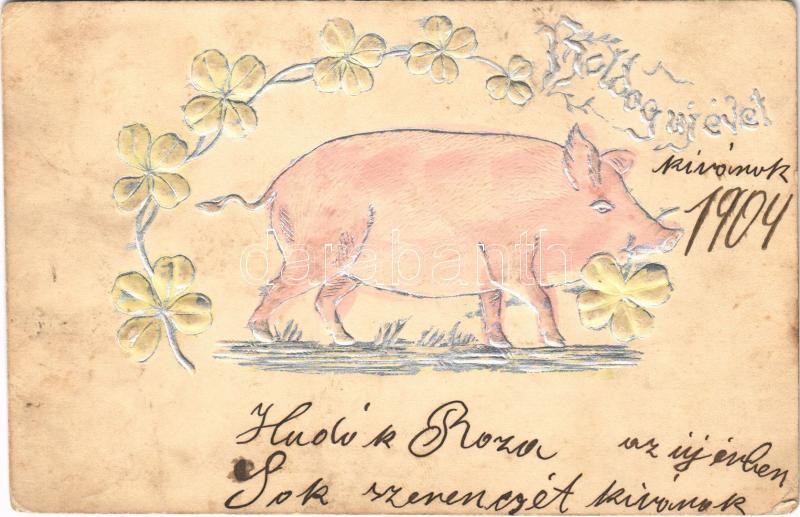 Boldog új évet
kivánok
1904
darabanth
Hudók Roza az uj évben
Sok szerencsét kivánok